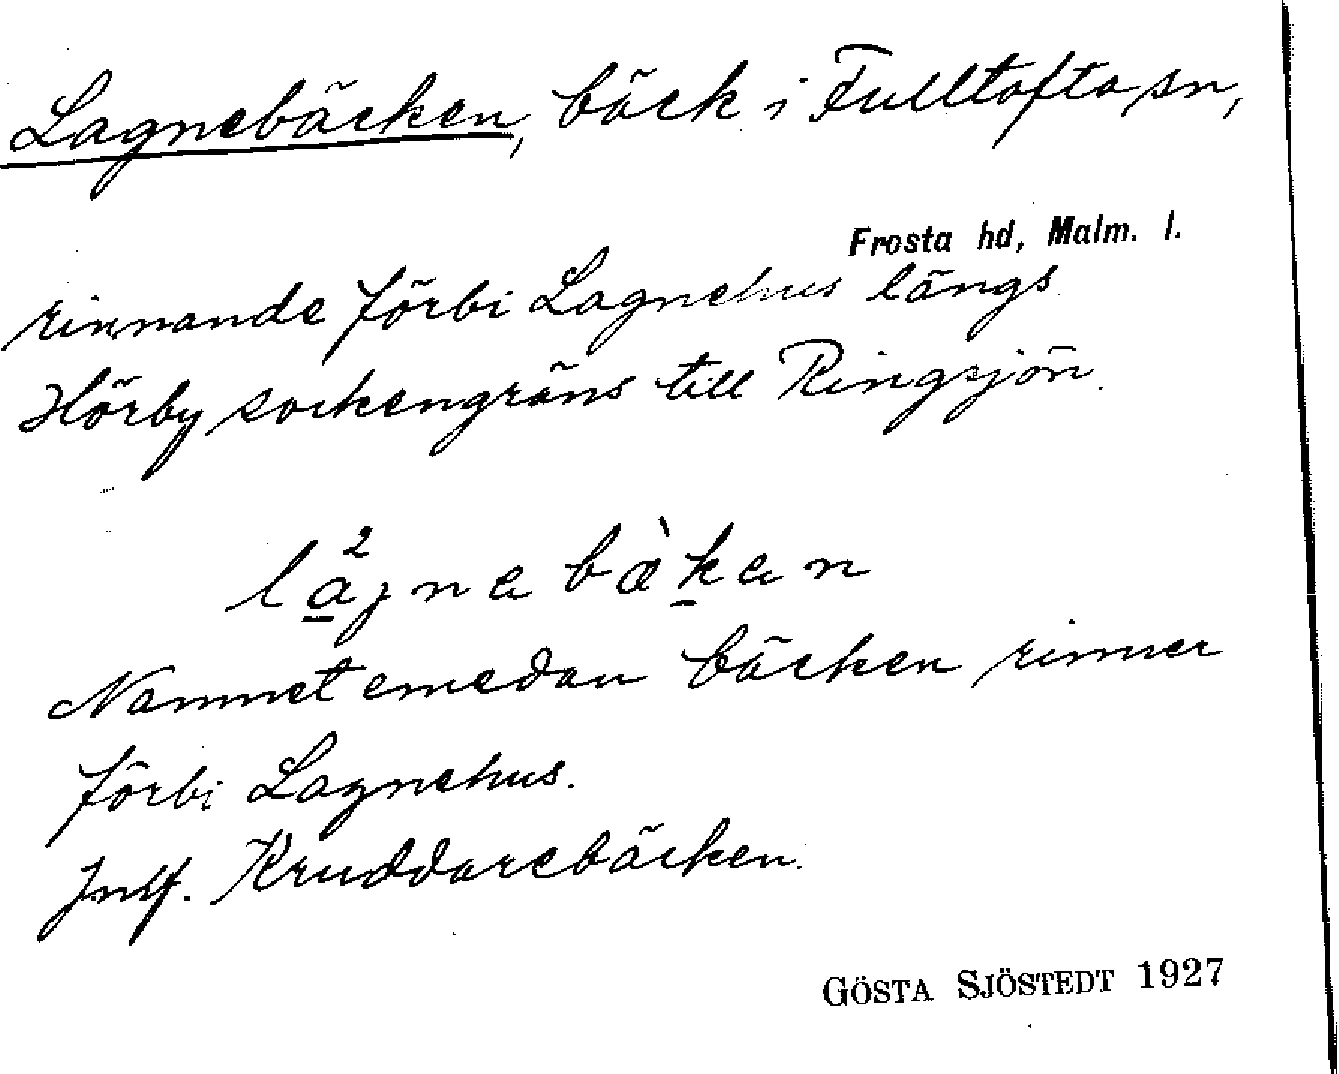 Lagnebäcken, bäck i Fulltofta sn,
Frosta hd, Malm. l.
rinnande förbi Lagnehus längs
Hörby sockengräns till Ringsjön.
la²jnebækan
Namnet emedan bäcken rinner
förbi Lagnehus.
Jmf. Kruddarebäcken.
GÖSTA SJÖSTEDT 1927